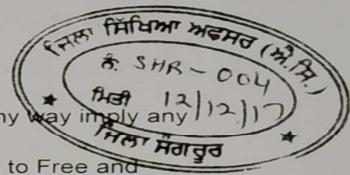 ਜ਼ਿਲਾ ਸਿੱਖਿਆ ਅਫਸਰ (ਐ.ਸਿ.)
ਨੰ. SHR - 004
ਮਿਤੀ 12/12/17
ਜ਼ਿਲਾ ਸੰਗਰੂਰ
ny way imply any
to Free and